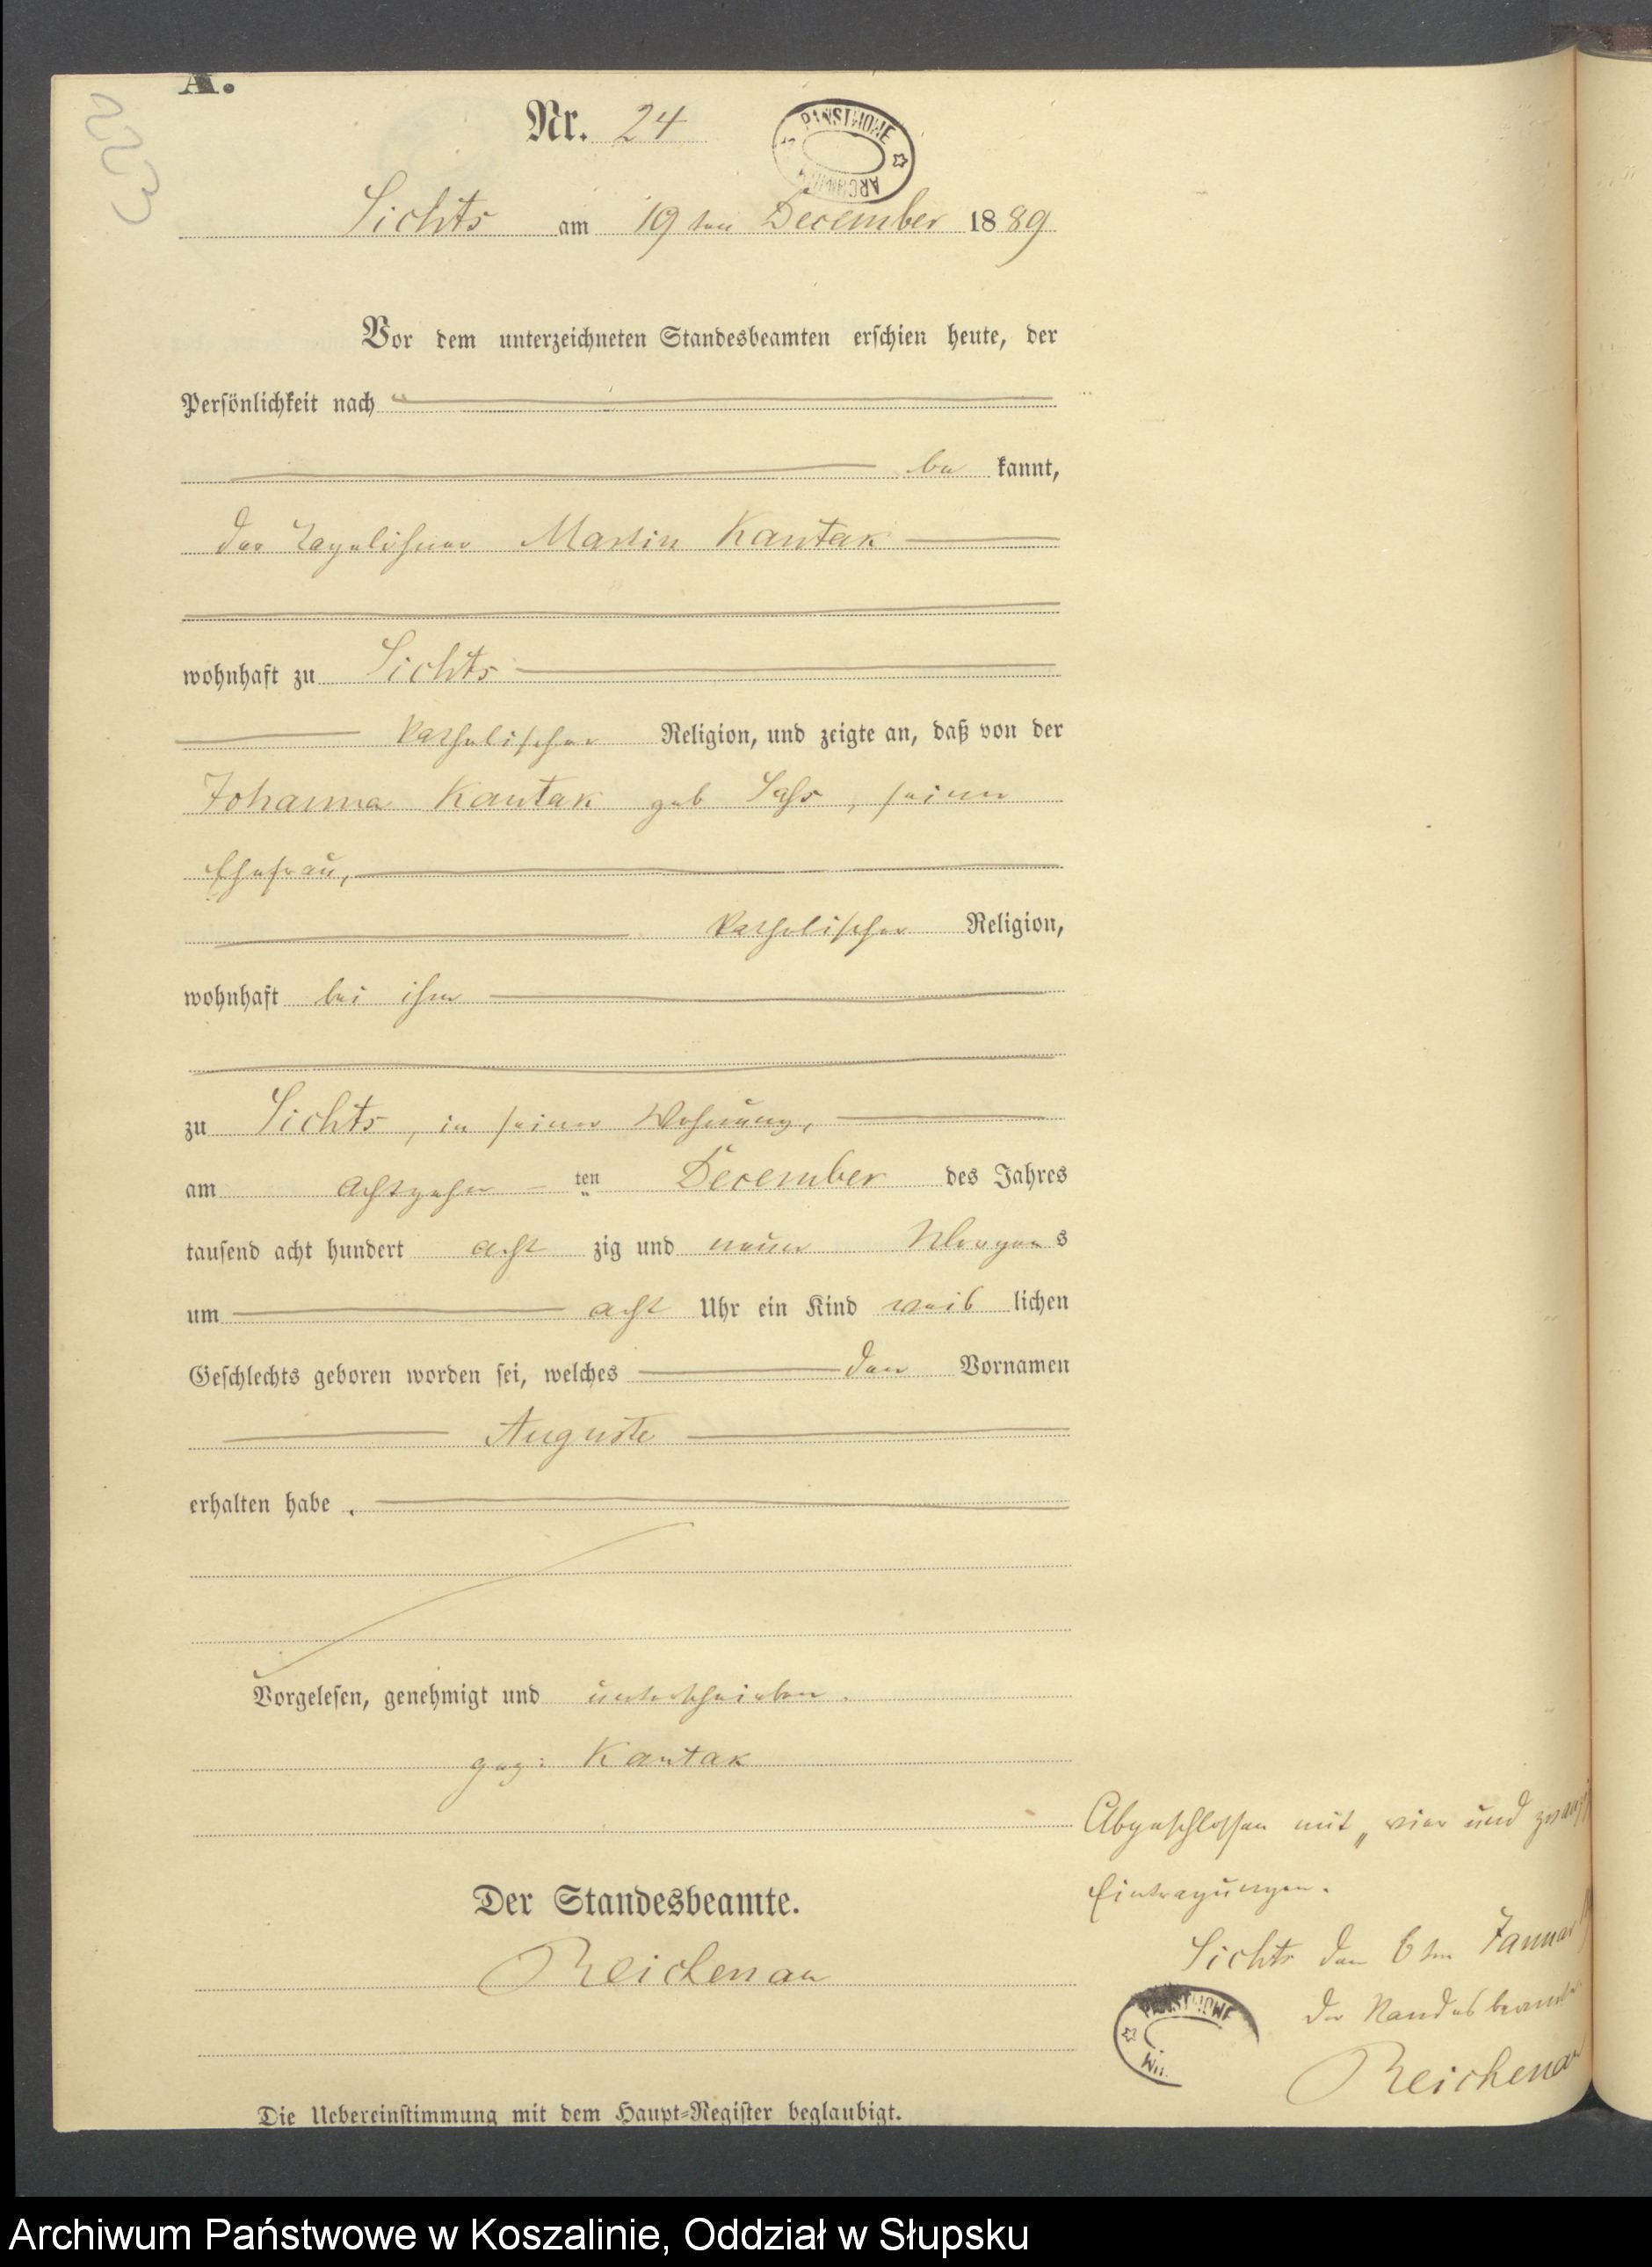 A.
Nr. 24
PAŃSTWOWE
ARCHIWUM
Lichts am 19 ten December 1889
Vor dem unterzeichneten Standesbeamten erschien heute, der
Persönlichkeit nach
be kannt,
der Tagelöhner Martin Kantak
wohnhaft zu Lichts
katholischer Religion, und zeigte an, daß von der
Johanna Kantak geb , seiner
Ehefrau,
katholischer Religion,
wohnhaft bei ihm
zu Lichts, in seiner Wohnung,
am achtzehn ten December des Jahres
tausend acht hundert acht zig und neun Morgens
um acht Uhr ein Kind weib lichen
Geschlechts geboren worden sei, welches den Vornamen
Auguste
erhalten habe.
Vorgelesen, genehmigt und unterschrieben.
gez: Kantak
Abgeschlossen mit „vier und
Eintragungen.
Der Standesbeamte.
Reichenau
Lichts den 6ten Januar
PAŃSTWOWE
Der Standesbeamte
Reichenau
Die Uebereinstimmung mit dem Haupt-Register beglaubigt.
Archiwum Państwowe w Koszalinie, Oddział w Słupsku